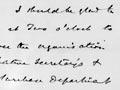 I should be glad to
at Two o'clock to
the organisation
Secretary's
Purchase Department